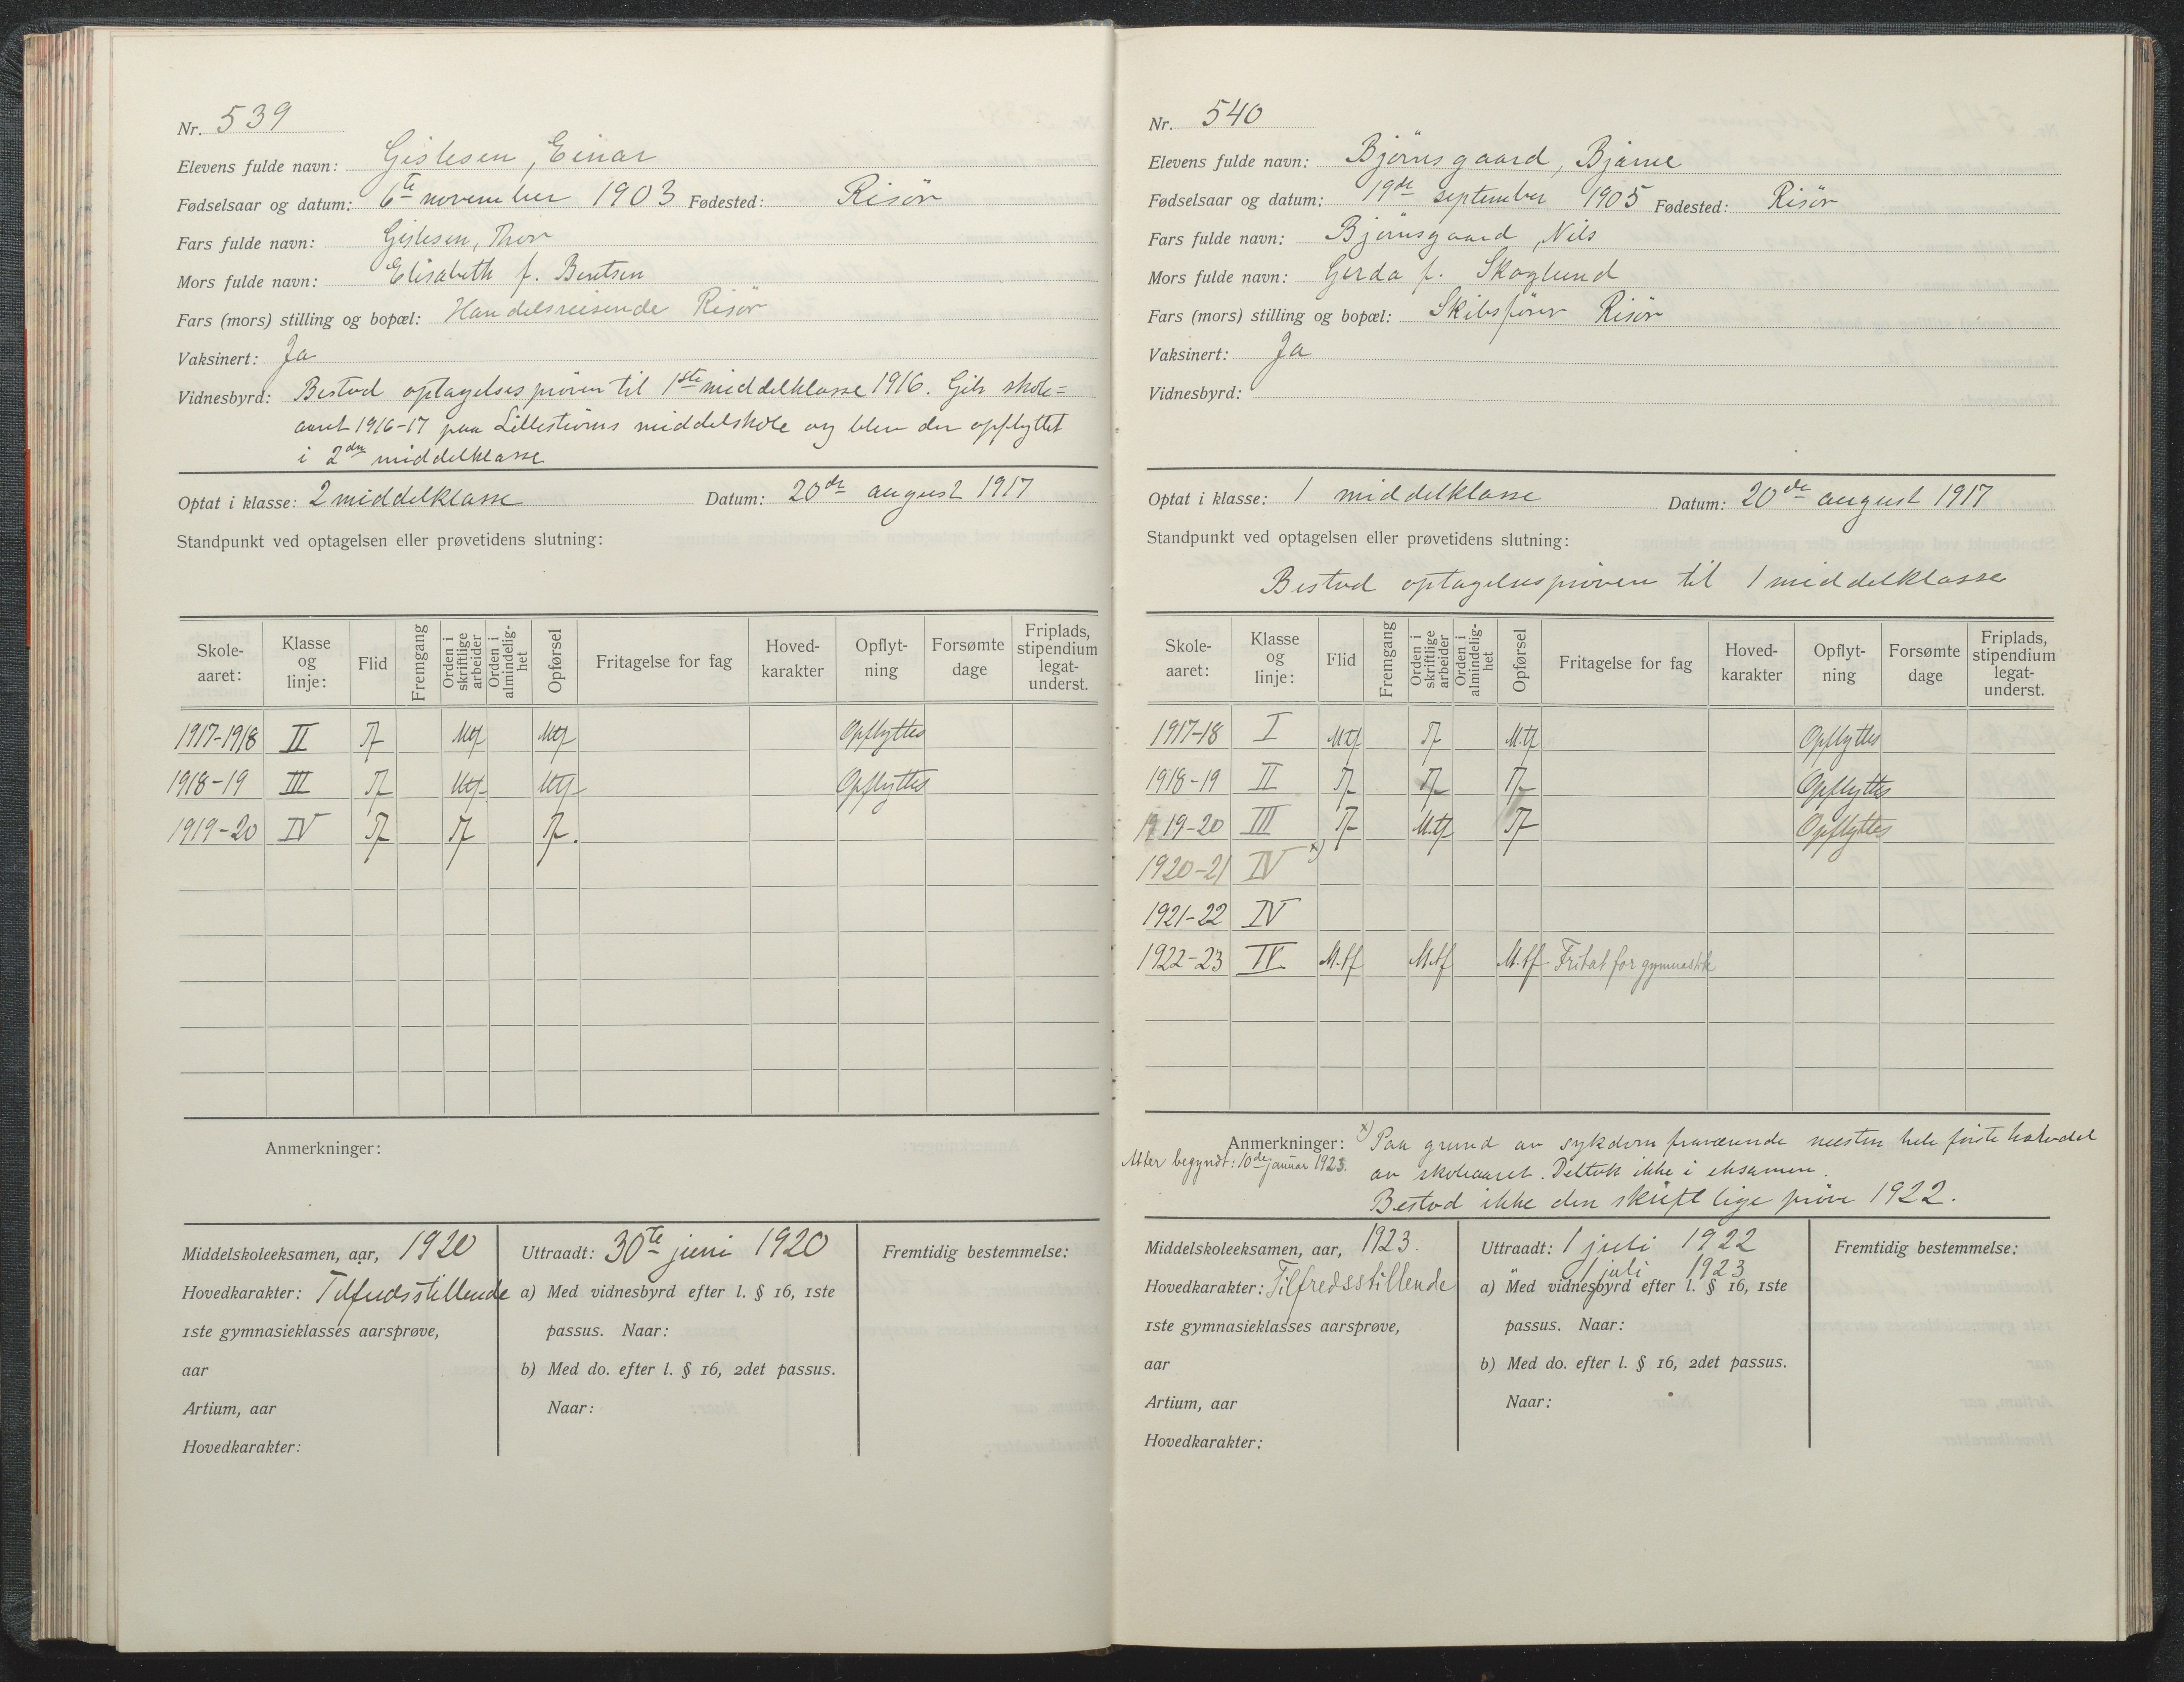 Nr. 539
Elevens fulde navn: Gislesen, Einar
Fødselsaar og datum: 6te november 1903 Fødested: Risør
Fars fulde navn: Gislesen, Thor
Mors fulde navn: Elisabeth f. Bentsen
Fars (mors) stilling og bopæl: Handelsreisende Risør
Vaksinert: Ja
Vidnesbyrd: Bestod optagelsesprøven til 1ste middelklasse 1916. Gik skole=
aaret 1916-17 paa Lillestrøms middelskole og blev der opflyttet
i 2den middelklasse
Optat i klasse: 2 middelklasse Datum: 20de august 1917
Standpunkt ved optagelsen eller prøvetidens slutning:
Skole-aaret: Klasse og linje: Flid Fremgang Orden i skriftlige arbeider Orden i almindelig-het Opførsel Fritagelse for fag Hoved-karakter Opflyt-ning Forsømte dage Friplads, stipendium legat-underst.
1917-1918 II Tf Mtf Mtf Opflyttes
1918-19 III Tf Mtf Mtf Opflyttes
1919-20 IV Tf Tf Tf.
Anmerkninger:
Middelskoleeksamen, aar, 1920
Hovedkarakter: Tilfredsstillende
1ste gymnasieklasses aarsprøve,
aar
Artium, aar
Hovedkarakter:
Uttraadt: 30te juni 1920
a) Med vidnesbyrd efter l. § 16, 1ste
passus. Naar:
b) Med do. efter l. § 16, 2det passus.
Naar:
Fremtidig bestemmelse:
Nr. 540
Elevens fulde navn: Bjørnsgaard, Bjarne
Fødselsaar og datum: 19de september 1905 Fødested: Risør
Fars fulde navn: Bjørnsgaard, Nils
Mors fulde navn: Gerda f. Skoglund
Fars (mors) stilling og bopæl: Skibsfører Risør
Vaksinert: Ja
Vidnesbyrd:
Optat i klasse: 1 middelklasse Datum: 20de august 1917
Standpunkt ved optagelsen eller prøvetidens slutning:
Bestod optagelsesprøven til 1 middelklasse
Skole-aaret: Klasse og linje: Flid Fremgang Orden i skriftlige arbeider Orden i almindelig-het Opførsel Fritagelse for fag Hoved-karakter Opflyt-ning Forsømte dage Friplads, stipendium legat-underst.
1917-18 I Mtf Tf M.tf Opflyttes
1918-19 II Tf Tf Tf Opflyttes
1919-20 III Tf M.tf Tf Opflyttes
1920-21 IV x)
1921-22 IV
1922-23 IV M.tf M.tf M.tf. Fritat for gymnastik
Anmerkninger: x) Paa grund av sykdom fraværende næsten hele første halvdel
Atter begyndt: 10de januar 1923. av skoleaaret. Deltok ikke i eksamen.
Bestod ikke den skriftlige prøve 1922.
Middelskoleeksamen, aar, 1923.
Hovedkarakter: Tilfredsstillende
1ste gymnasieklasses aarsprøve,
aar
Artium, aar
Hovedkarakter:
Uttraadt: 1 juli 1922
" 1 juli 1923
a) Med vidnesbyrd efter l. § 16, 1ste
passus. Naar:
b) Med do. efter l. § 16, 2det passus.
Naar:
Fremtidig bestemmelse: